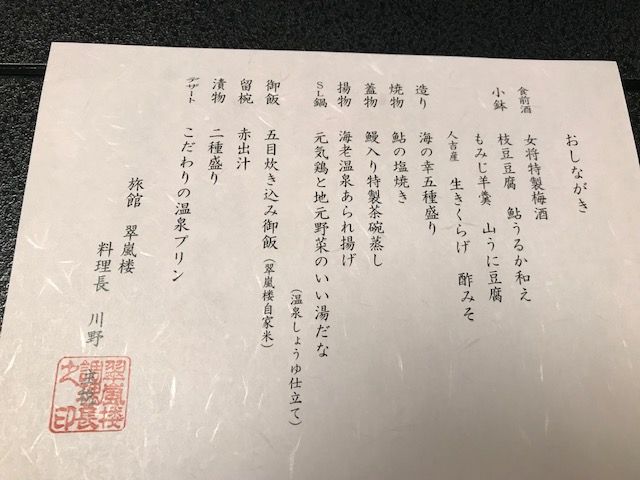 おしながき
食前酒 女将特製梅酒
小鉢 枝豆豆腐 鮎うるか和え
もみじ羊羹 山うに豆腐
人吉産 生きくらげ 酢みそ
造り 海の幸五種盛り
焼物 鮎の塩焼き
蓋物 鰻入り特製茶碗蒸し
揚物 海老温泉あられ揚げ
SL鍋 元気鶏と地元野菜のいい湯だな
(温泉しょうゆ仕立て)
御飯 五目炊き込み御飯(翠嵐楼自家米)
留椀 赤出汁
漬物 二種盛り
デザート こだわりの温泉プリン
旅館 翠嵐楼
料理長 川野
翠嵐楼
調理長
之印